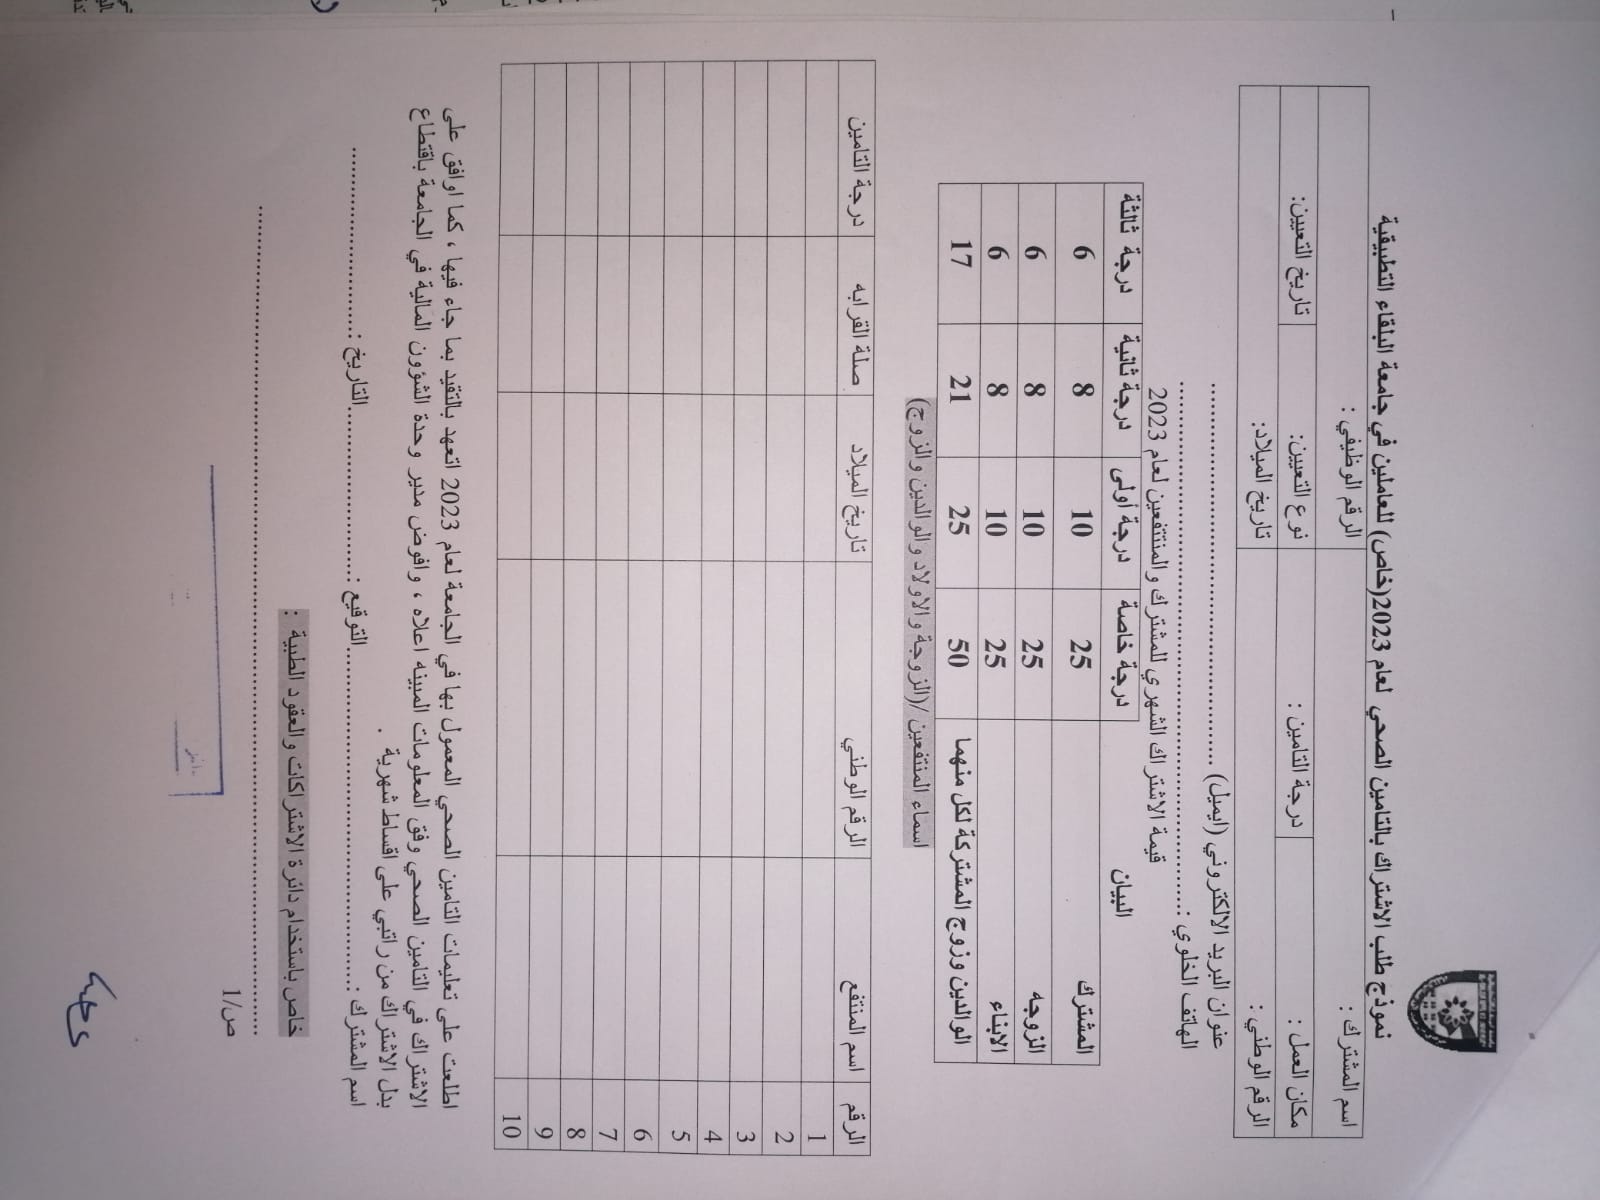 نموذج طلب الاشتراك بالتامين الصحي لعام 2023(خاص) للعاملين في جامعة البلقاء التطبيقية
اسم المشترك : الرقم الوظيفي :
مكان العمل : درجة التامين : نوع التعيين: تاريخ التعيين:
الرقم الوطني : تاريخ الميلاد:
عنوان البريد الالكتروني (ايميل) ................................................
الهاتف الخلوي : ................................................
قيمة الاشتراك الشهري للمشترك والمنتفعين لعام 2023
البيان درجة خاصة درجة أولى درجة ثانية درجة ثالثة
المشترك 25 10 8 6
الزوجه 25 10 8 6
الابناء 25 10 8 6
الوالدين وزوج المشتركة لكل منهما 50 25 21 17
اسماء المنتفعين /(الزوجة والاولاد والوالدين والزوج)
الرقم اسم المنتفع الرقم الوطني تاريخ الميلاد صلة القرابه درجة التامين
1
2
3
4
5
6
7
8
9
10
اطلعت على تعليمات التامين الصحي المعمول بها في الجامعة لعام 2023 اتعهد بالتقيد بما جاء فيها ، كما اوافق على
الاشتراك في التامين الصحي وفق المعلومات المبينه اعلاه ، وافوض مدير وحدة الشؤون المالية في الجامعة باقتطاع
بدل الاشتراك من راتبي على اقساط شهرية .
اسم المشترك : ................................ التوقيع : ................................ التاريخ : ................................
خاص باستخدام دائرة الاشتراكات والعقود الطبية :
................................................................................................
ص/1